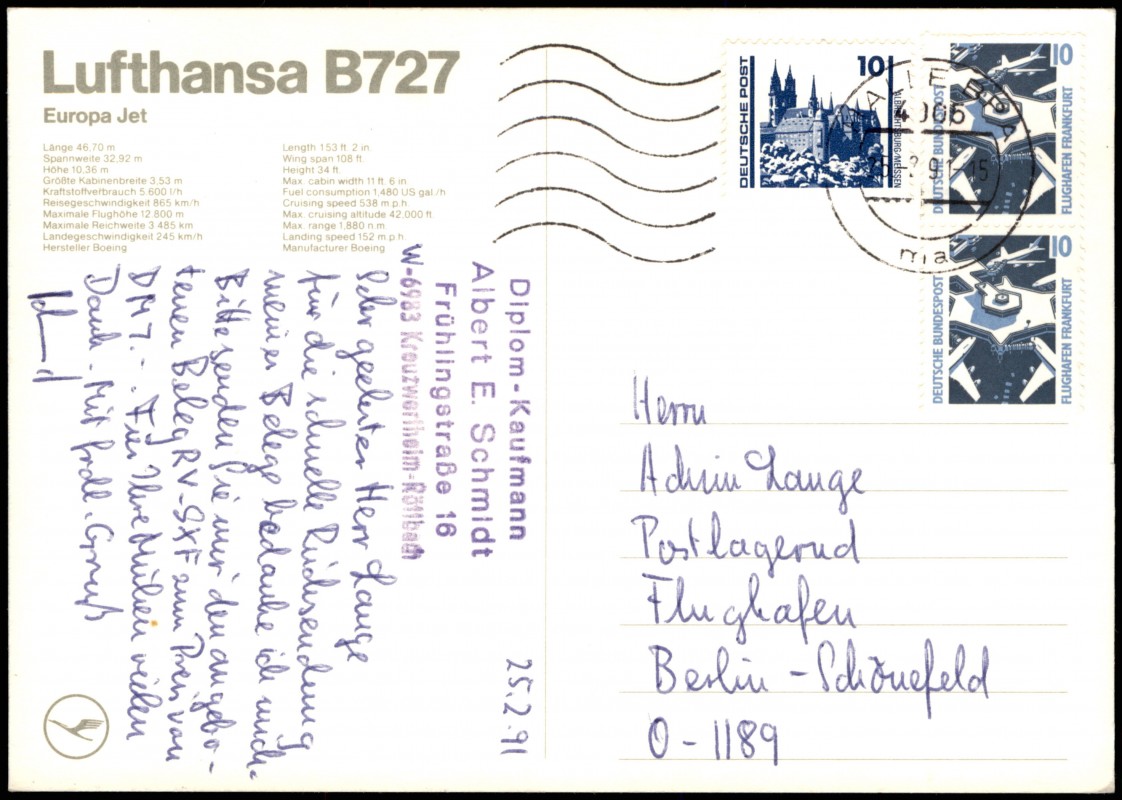 Lufthansa B727
Europa Jet
Länge 46,70 m
Spannweite 32,92 m
Höhe 10,36 m
Größte Kabinenbreite 3,53 m
Kraftstoffverbrauch 5 600 l/h
Reisegeschwindigkeit 865 km/h
Maximale Flughöhe 12 800 m
Maximale Reichweite 3 485 km
Landegeschwindigkeit 245 km/h
Hersteller Boeing
Length 153 ft. 2 in.
Wing span 108 ft.
Height 34 ft.
Max. cabin width 11 ft. 6 in.
Fuel consumption 1,480 US gal./h
Cruising speed 538 m.p.h.
Max. cruising altitude 42,000 ft.
Max. range 1,880 n.m.
Landing speed 152 m.p.h.
Manufacturer Boeing
DEUTSCHE POST
10
ALBRECHTSBURG MEISSEN
10
DEUTSCHE BUNDESPOST
FLUGHAFEN FRANKFURT
10
DEUTSCHE BUNDESPOST
FLUGHAFEN FRANKFURT
ma
Diplom-Kaufmann
Albert E. Schmidt
Frühlingstraße 16
W-6983 Kreuzwertheim-Röttbach
25.2.91
Sehr geehrter Herr Lange
für die schnelle Rücksendung
meiner Belege bedanke ich mich.
Bitte senden Sie mir den angebo-
tenen Beleg RV-SXF zum Preis von
DM 7.-. Für Ihre Mühen vielen
Dank. Mit frdl. Gruß
Herrn
Achim Lange
Postlagernd
Flughafen
Berlin - Schönefeld
O - 1189